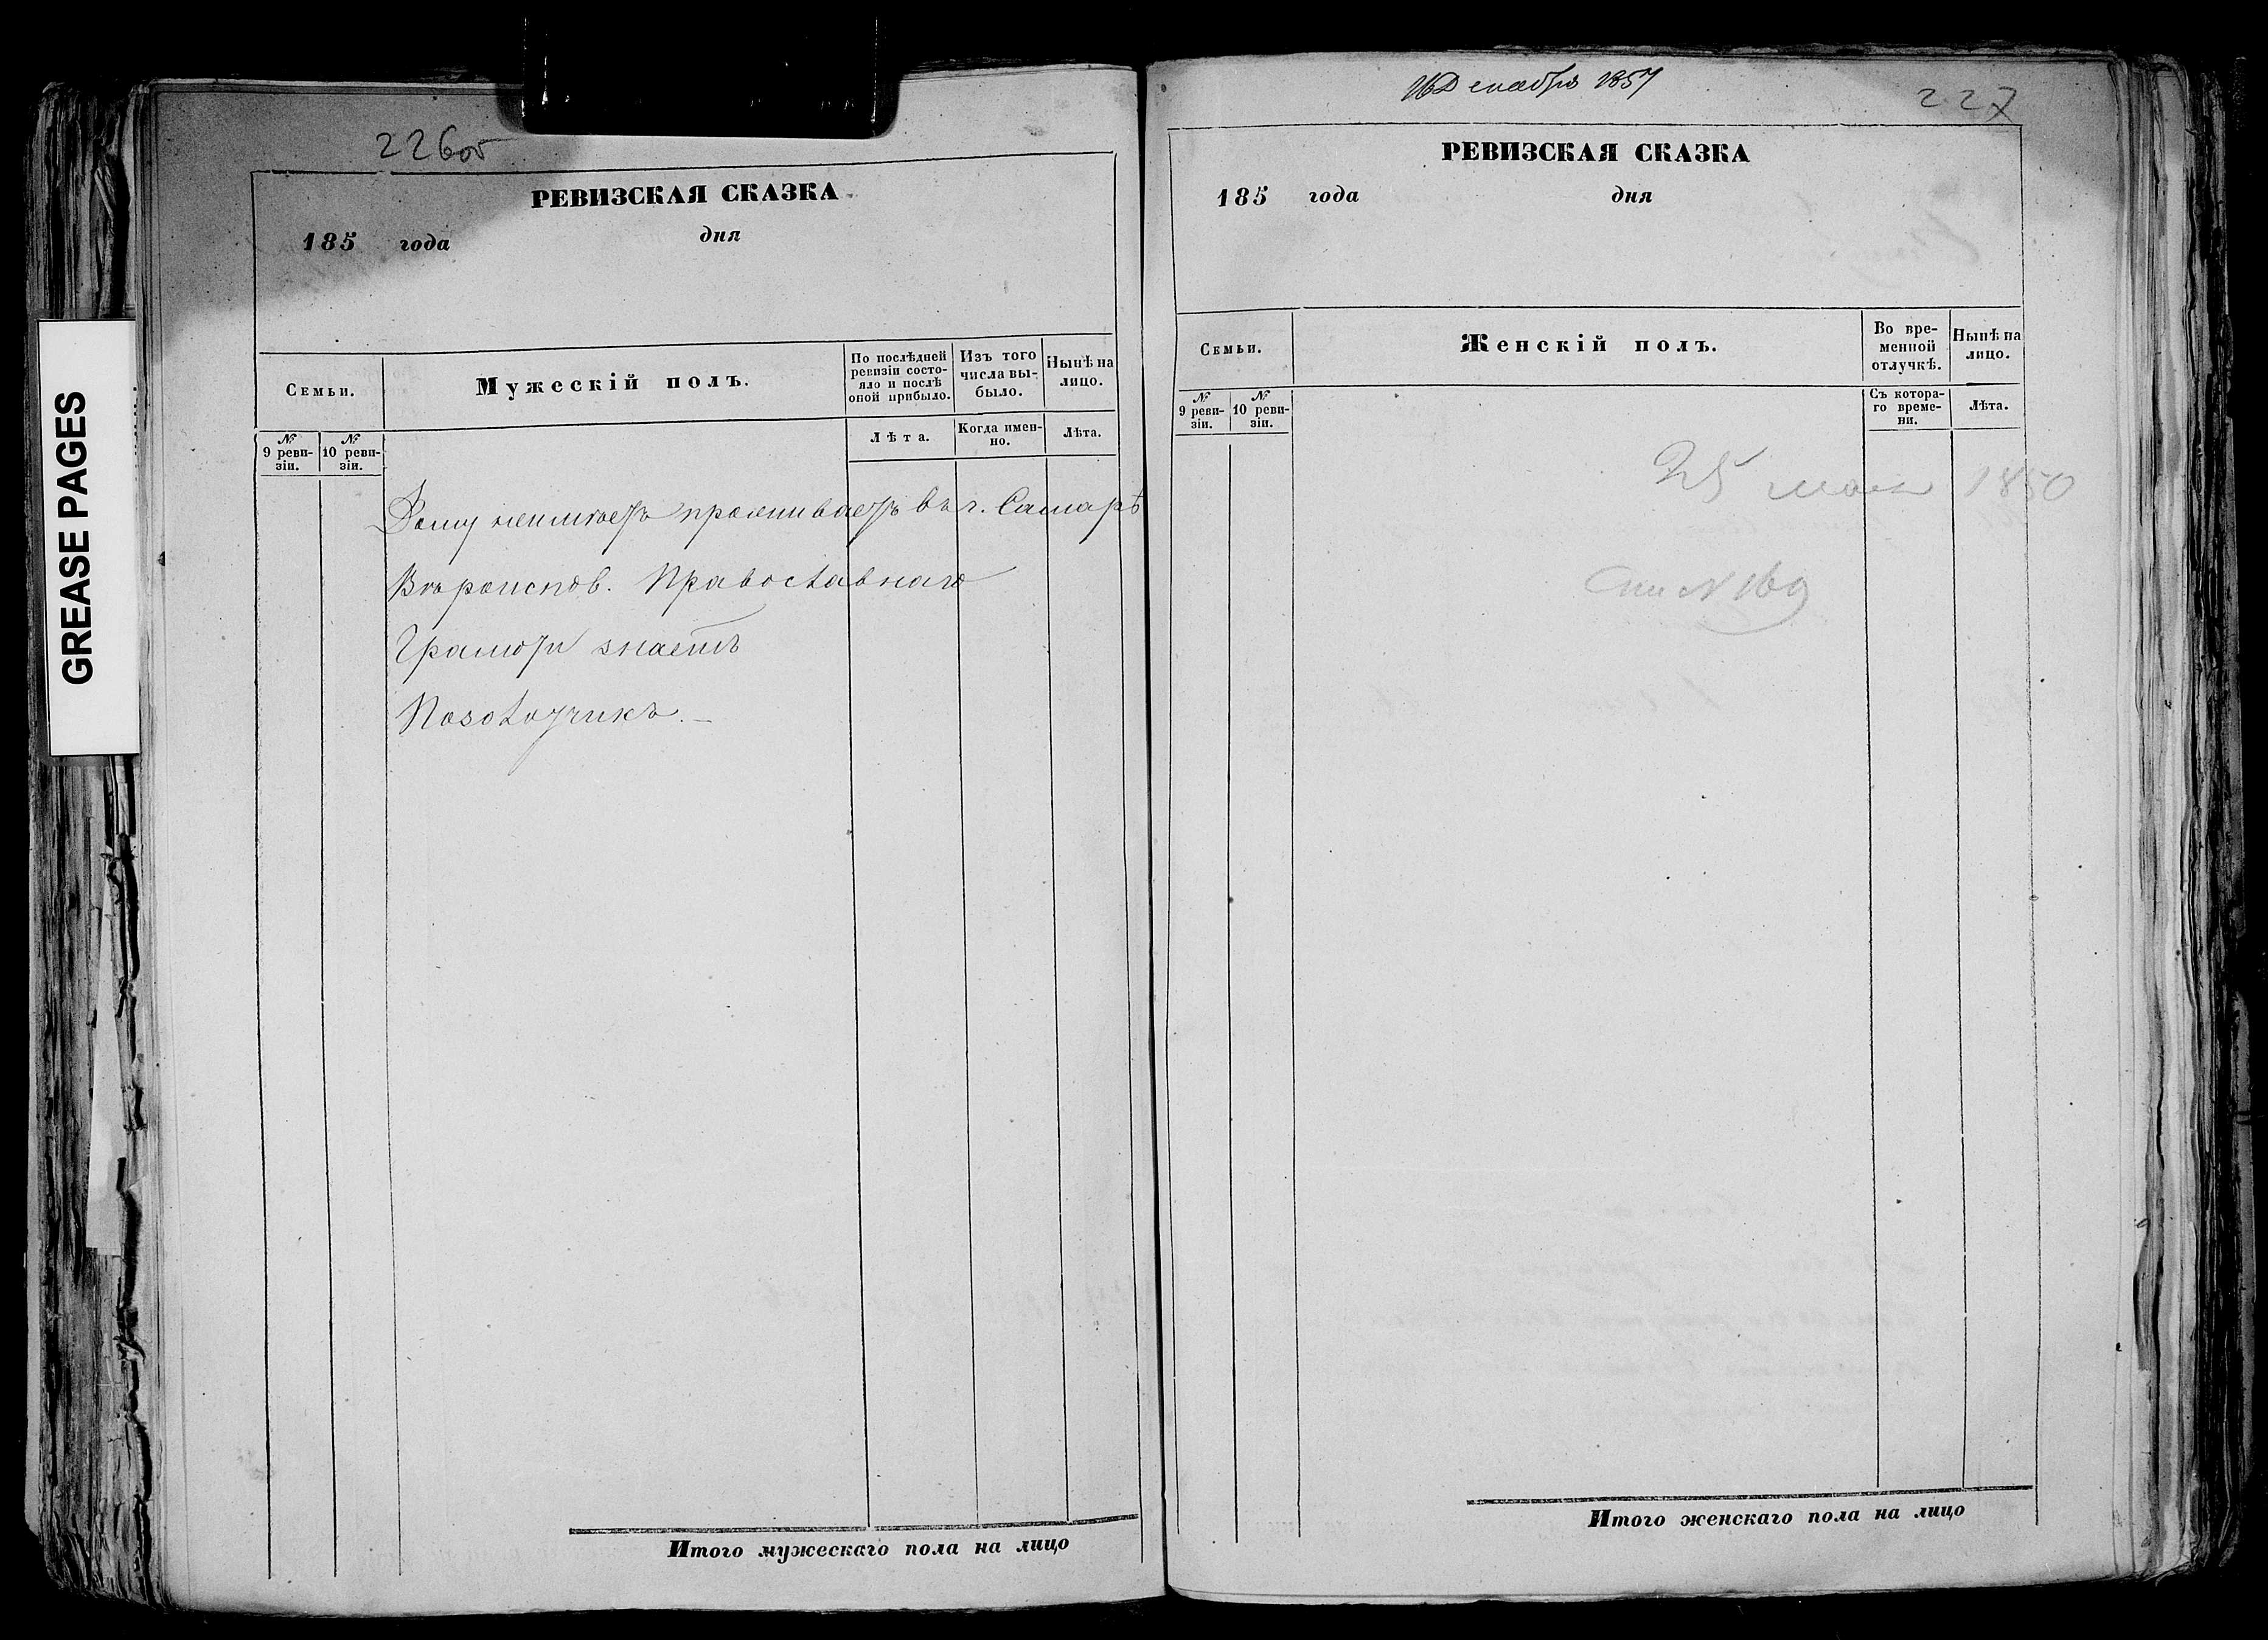 GREASE PAGES
226об
РЕВИЗСКАЯ СКАЗКА
185 года дня
Семьи.
Мужескій полъ.
По послѣдней ревизіи состояло и послѣ оной прибыло.
Изъ того числа выбыло.
Нынѣ на лицо.
№ 9 ревизіи.
№ 10 ревизіи.
Лѣта.
Когда именно.
Лѣта.
Дому неимѣетъ проживаетъ въ г. Самарѣ
Вѣроиспов. Православнаго
Грамоти знаетъ
Позолотчикъ.—
Итого мужескаго пола на лицо
16 Декабря 1857
227
РЕВИЗСКАЯ СКАЗКА
185 года дня
Семьи.
Женскій полъ.
Во временной отлучкѣ.
Нынѣ на лицо.
№ 9 ревизіи.
№ 10 ревизіи.
Съ котораго времени.
Лѣта.
25 мая 1850
№ 169
Итого женскаго пола на лицо